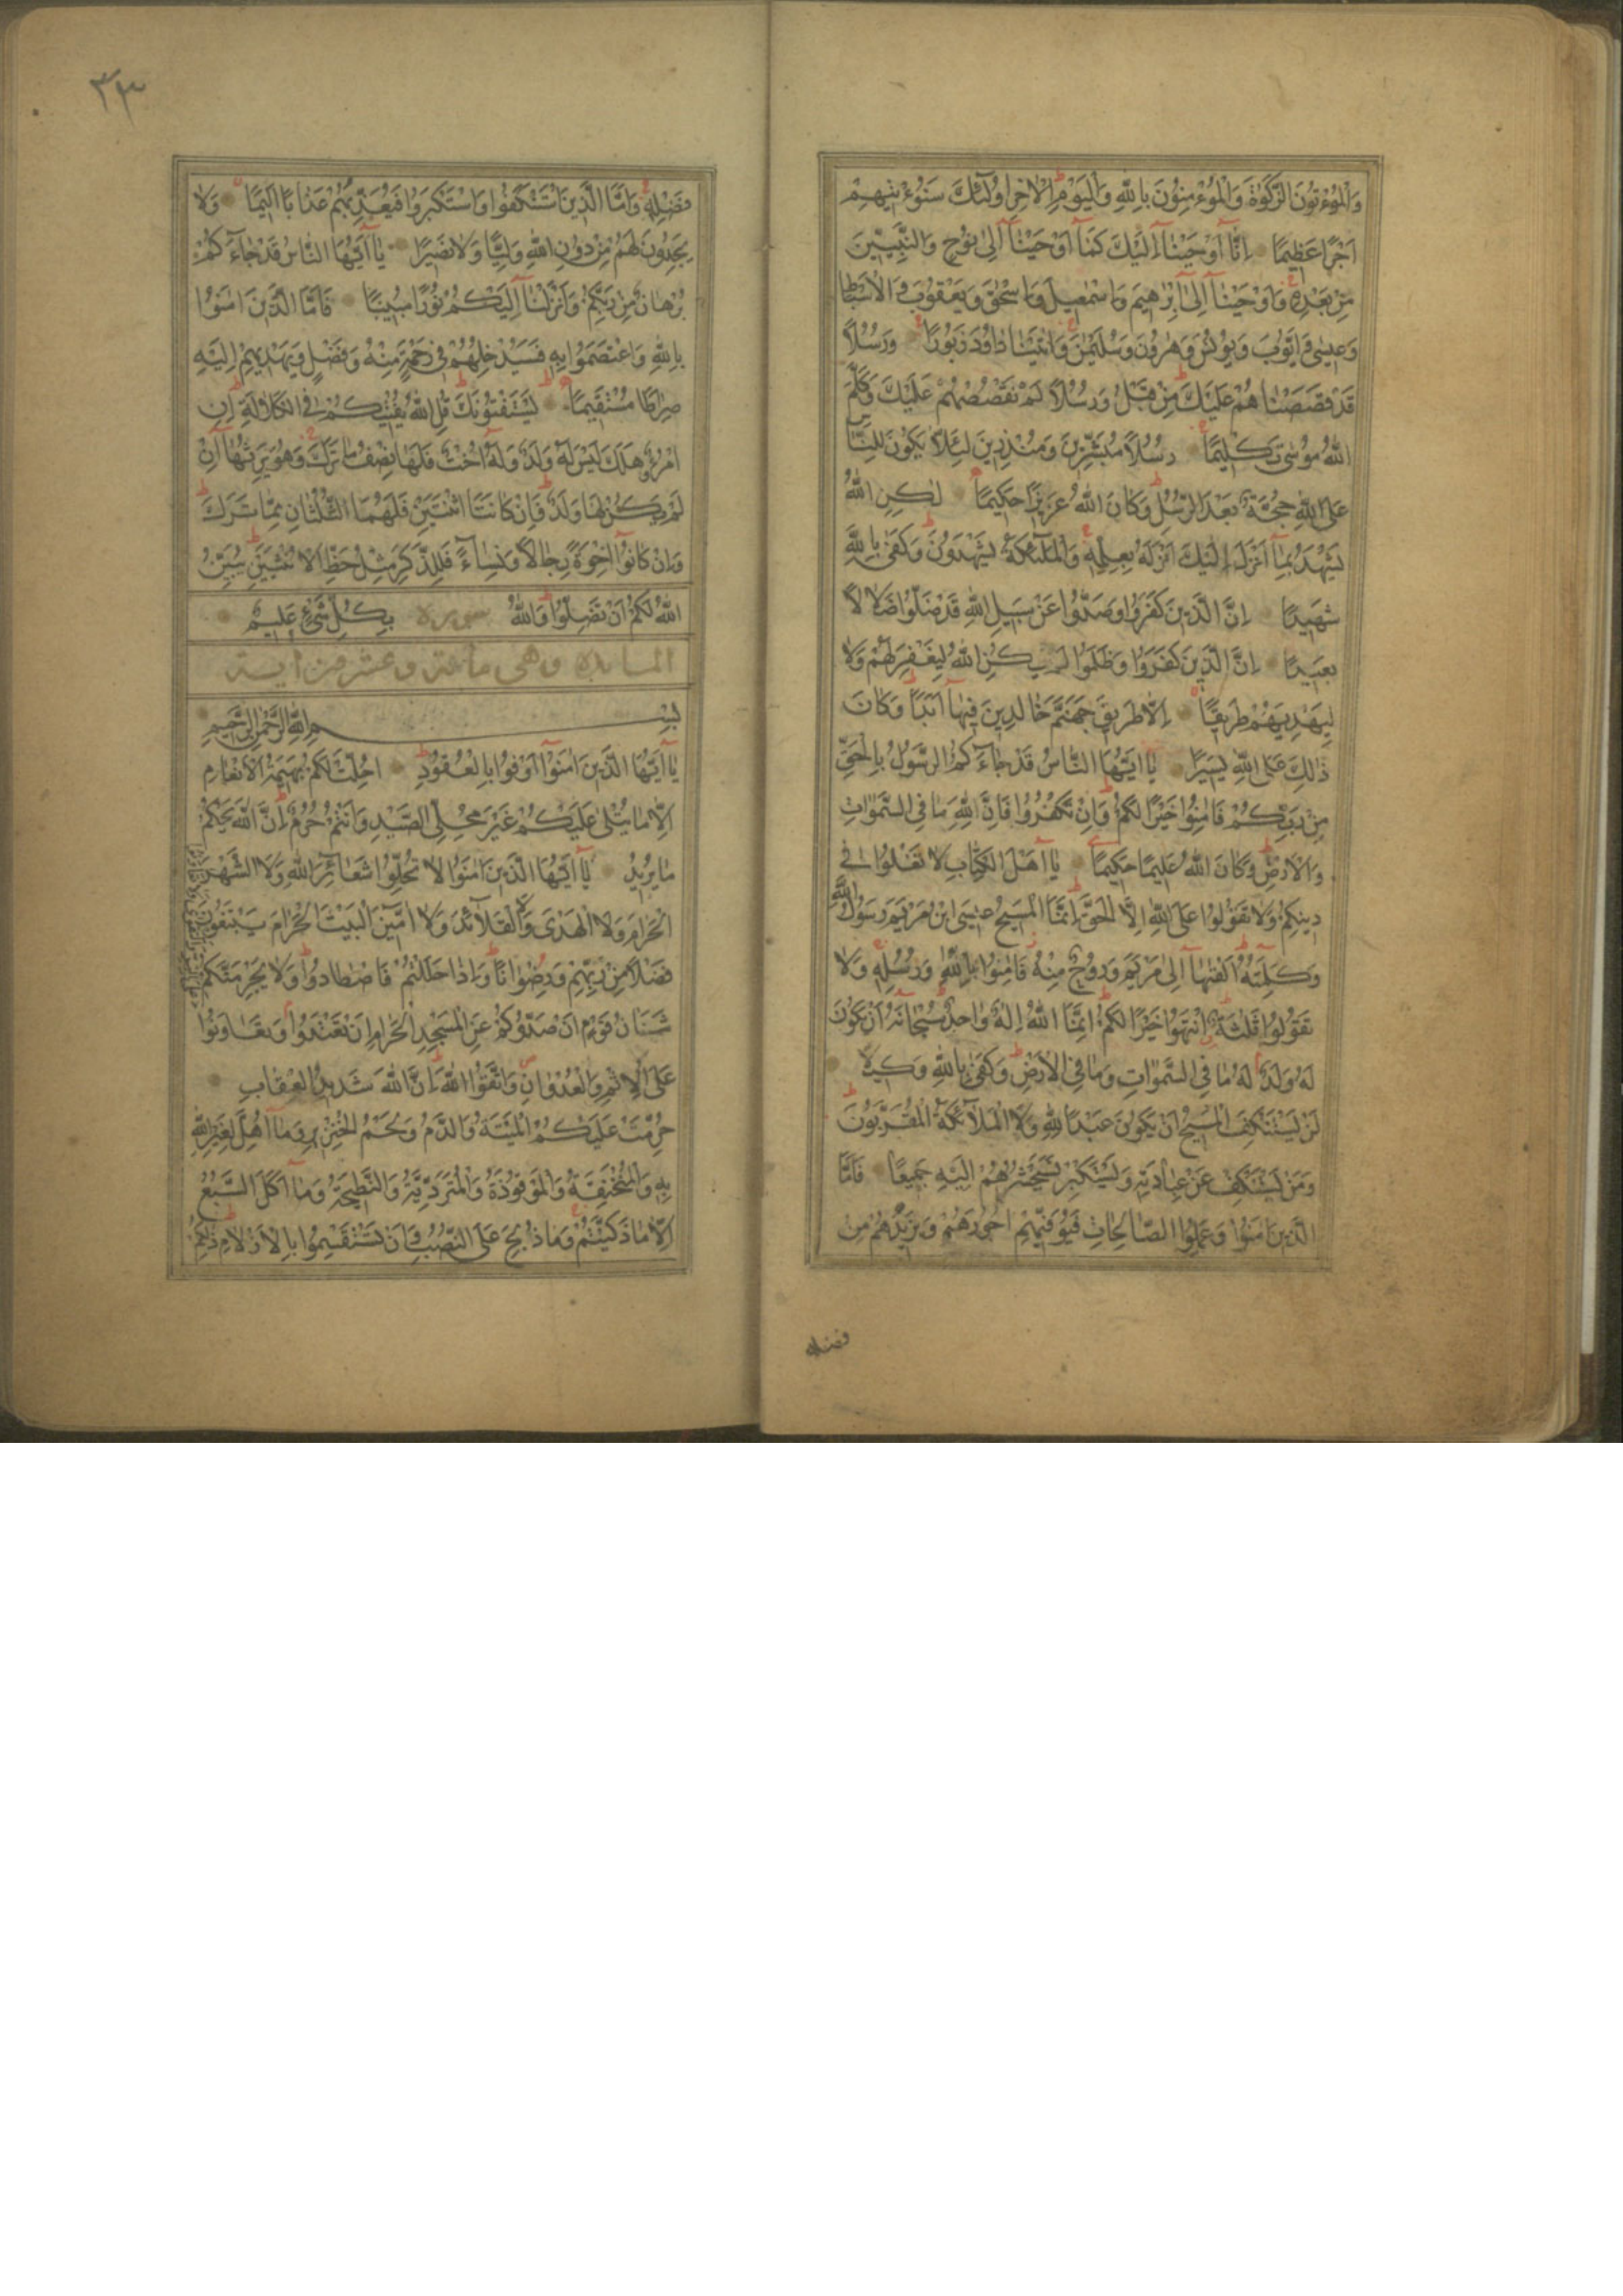 وَالْمُؤْتُونَ الزَّكٰوةَ وَالْمُؤْمِنُونَ بِاللّٰهِ وَالْيَوْمِ الْاٰخِرِ اُولٰٓئِكَ سَنُؤْتٖيهِمْ
اَجْرًا عَظٖيمًا اِنَّٓا اَوْحَيْنَٓا اِلَيْكَ كَمَٓا اَوْحَيْنَٓا اِلٰى نُوحٍ وَالنَّبِيّٖنَ
مِنْ بَعْدِهٖ وَاَوْحَيْنَٓا اِلٰٓى اِبْرٰهٖيمَ وَاِسْمٰعٖيلَ وَاِسْحٰقَ وَيَعْقُوبَ وَالْاَسْبَاطِ
وَعٖيسٰى وَاَيُّوبَ وَيُونُسَ وَهٰرُونَ وَسُلَيْمٰنَ وَاٰتَيْنَا دَاوُدَ زَبُورًا وَرُسُلًا
قَدْ قَصَصْنَاهُمْ عَلَيْكَ مِنْ قَبْلُ وَرُسُلًا لَمْ نَقْصُصْهُمْ عَلَيْكَ وَكَلَّمَ
اللّٰهُ مُوسٰى تَكْلٖيمًا رُسُلًا مُبَشِّرٖينَ وَمُنْذِرٖينَ لِئَلَّا يَكُونَ لِلنَّاسِ
عَلَى اللّٰهِ حُجَّةٌ بَعْدَ الرُّسُلِ وَكَانَ اللّٰهُ عَزٖيزًا حَكٖيمًا لٰكِنِ اللّٰهُ
يَشْهَدُ بِمَٓا اَنْزَلَ اِلَيْكَ اَنْزَلَهُ بِعِلْمِهٖ وَالْمَلٰٓئِكَةُ يَشْهَدُونَ وَكَفٰى بِاللّٰهِ
شَهٖيدًا اِنَّ الَّذٖينَ كَفَرُوا وَصَدُّوا عَنْ سَبٖيلِ اللّٰهِ قَدْ ضَلُّوا ضَلَالًا
بَعٖيدًا اِنَّ الَّذٖينَ كَفَرُوا وَظَلَمُوا لَمْ يَكُنِ اللّٰهُ لِيَغْفِرَ لَهُمْ وَلَا
لِيَهْدِيَهُمْ طَرٖيقًا اِلَّا طَرٖيقَ جَهَنَّمَ خَالِدٖينَ فٖيهَٓا اَبَدًا وَكَانَ
ذٰلِكَ عَلَى اللّٰهِ يَسٖيرًا يَٓا اَيُّهَا النَّاسُ قَدْ جَٓاءَكُمُ الرَّسُولُ بِالْحَقِّ
مِنْ رَبِّكُمْ فَاٰمِنُوا خَيْرًا لَكُمْ وَاِنْ تَكْفُرُوا فَاِنَّ لِلّٰهِ مَا فِى السَّمٰوَاتِ
وَالْاَرْضِ وَكَانَ اللّٰهُ عَلٖيمًا حَكٖيمًا يَٓا اَهْلَ الْكِتَابِ لَا تَغْلُوا فٖى
دٖينِكُمْ وَلَا تَقُولُوا عَلَى اللّٰهِ اِلَّا الْحَقَّ اِنَّمَا الْمَسٖيحُ عٖيسَى ابْنُ مَرْيَمَ رَسُولُ اللّٰهِ
وَكَلِمَتُهُ اَلْقٰيهَٓا اِلٰى مَرْيَمَ وَرُوحٌ مِنْهُ فَاٰمِنُوا بِاللّٰهِ وَرُسُلِهٖ وَلَا
تَقُولُوا ثَلٰثَةٌ اِنْتَهُوا خَيْرًا لَكُمْ اِنَّمَا اللّٰهُ اِلٰهٌ وَاحِدٌ سُبْحَانَهُ اَنْ يَكُونَ
لَهُ وَلَدٌ لَهُ مَا فِى السَّمٰوَاتِ وَمَا فِى الْاَرْضِ وَكَفٰى بِاللّٰهِ وَكٖيلًا
لَنْ يَسْتَنْكِفَ الْمَسٖيحُ اَنْ يَكُونَ عَبْدًا لِلّٰهِ وَلَا الْمَلَٓائِكَةُ الْمُقَرَّبُونَ
وَمَنْ يَسْتَنْكِفْ عَنْ عِبَادَتِهٖ وَيَسْتَكْبِرْ فَسَيَحْشُرُهُمْ اِلَيْهِ جَمٖيعًا فَاَمَّا
الَّذٖينَ اٰمَنُوا وَعَمِلُوا الصَّالِحَاتِ فَيُوَفّٖيهِمْ اُجُورَهُمْ وَيَزٖيدُهُمْ مِنْ
فضله
٣٣
فَضْلِهٖ وَاَمَّا الَّذٖينَ اسْتَنْكَفُوا وَاسْتَكْبَرُوا فَيُعَذِّبُهُمْ عَذَابًا اَلٖيمًا وَلَا
يَجِدُونَ لَهُمْ مِنْ دُونِ اللّٰهِ وَلِيًّا وَلَا نَصٖيرًا يَٓا اَيُّهَا النَّاسُ قَدْ جَٓاءَكُمْ
بُرْهَانٌ مِنْ رَبِّكُمْ وَاَنْزَلْنَٓا اِلَيْكُمْ نُورًا مُبٖينًا فَاَمَّا الَّذٖينَ اٰمَنُوا
بِاللّٰهِ وَاعْتَصَمُوا بِهٖ فَسَيُدْخِلُهُمْ فٖى رَحْمَةٍ مِنْهُ وَفَضْلٍ وَيَهْدٖيهِمْ اِلَيْهِ
صِرَاطًا مُسْتَقٖيمًا يَسْتَفْتُونَكَ قُلِ اللّٰهُ يُفْتٖيكُمْ فِى الْكَلَالَةِ اِنِ
امْرُؤٌ هَلَكَ لَيْسَ لَهُ وَلَدٌ وَلَهُٓ اُخْتٌ فَلَهَا نِصْفُ مَا تَرَكَ وَهُوَ يَرِثُهَٓا اِنْ
لَمْ يَكُنْ لَهَا وَلَدٌ فَاِنْ كَانَتَا اثْنَتَيْنِ فَلَهُمَا الثُّلُثَانِ مِمَّا تَرَكَ
وَاِنْ كَانُٓوا اِخْوَةً رِجَالًا وَنِسَٓاءً فَلِلذَّكَرِ مِثْلُ حَظِّ الْاُنْثَيَيْنِ يُبَيِّنُ
اللّٰهُ لَكُمْ اَنْ تَضِلُّوا وَاللّٰهُ سورة بِكُلِّ شَىْءٍ عَلٖيمٌ
المائدة وهى مائة وعشرون اية
بِسْمِ اللّٰهِ الرَّحْمٰنِ الرَّحٖيمِ
يَٓا اَيُّهَا الَّذٖينَ اٰمَنُٓوا اَوْفُوا بِالْعُقُودِ اُحِلَّتْ لَكُمْ بَهٖيمَةُ الْاَنْعَامِ
اِلَّا مَا يُتْلٰى عَلَيْكُمْ غَيْرَ مُحِلِّى الصَّيْدِ وَاَنْتُمْ حُرُمٌ اِنَّ اللّٰهَ يَحْكُمُ
مَا يُرٖيدُ يَٓا اَيُّهَا الَّذٖينَ اٰمَنُوا لَا تُحِلُّوا شَعَٓائِرَ اللّٰهِ وَلَا الشَّهْرَ
الْحَرَامَ وَلَا الْهَدْىَ وَلَا الْقَلَٓائِدَ وَلَٓا اٰمّٖينَ الْبَيْتَ الْحَرَامَ يَبْتَغُونَ
فَضْلًا مِنْ رَبِّهِمْ وَرِضْوَانًا وَاِذَا حَلَلْتُمْ فَاصْطَادُوا وَلَا يَجْرِمَنَّكُمْ
شَنَاٰنُ قَوْمٍ اَنْ صَدُّوكُمْ عَنِ الْمَسْجِدِ الْحَرَامِ اَنْ تَعْتَدُوا وَتَعَاوَنُوا
عَلَى الْاِثْمِ وَالْعُدْوَانِ وَاتَّقُوا اللّٰهَ اِنَّ اللّٰهَ شَدٖيدُ الْعِقَابِ
حُرِّمَتْ عَلَيْكُمُ الْمَيْتَةُ وَالدَّمُ وَلَحْمُ الْخِنْزٖيرِ وَمَٓا اُهِلَّ لِغَيْرِ اللّٰهِ
بِهٖ وَالْمُنْخَنِقَةُ وَالْمَوْقُوذَةُ وَالْمُتَرَدِّيَةُ وَالنَّطٖيحَةُ وَمَٓا اَكَلَ السَّبُعُ
اِلَّا مَا ذَكَّيْتُمْ وَمَا ذُبِحَ عَلَى النُّصُبِ وَاَنْ تَسْتَقْسِمُوا بِالْاَزْلَامِ ذٰلِكُمْ